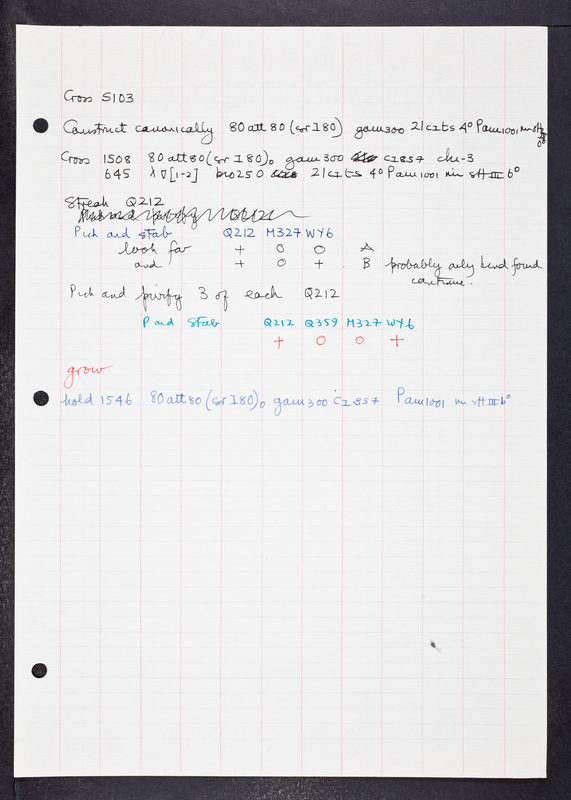 Cross 5103
Construct canonically 80 att 80 (or I80) gam300 21cIts 4° Pam1001 in sHIII 6°
Cross 1508 80 att 80 (or I80)o gam 300 cI857 chi-3
645 λ ∇ [1-2] bio250 21cI ts 4° Pam1001 in sHIII 6°
Streak Q212
Pick and stab Q212 M327 WY6
look for + O O A
and + O + B probably only kind found
continue.
Pick and purify 3 of each Q212
P and Stab Q212 Q359 M327 WY6
+ O O +
grow
hold 1546 80 att 80 (or I80)o gam300 cI857 Pam1001 in sHIII 6°